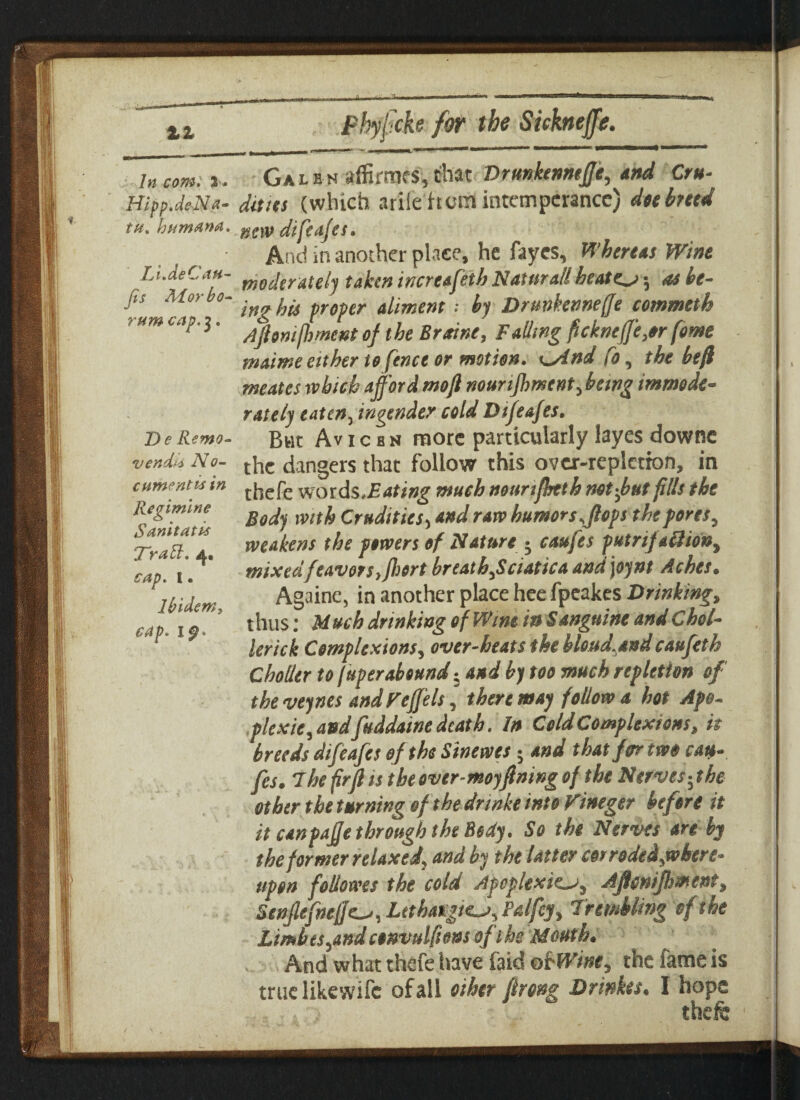 22 Phyſicke for the Sickneſſe.
In com. 2.
Hipp.deNa-
tu. humana.
Li.deCau-
ſis Morbo-
rum cap.3.
De Remo-
vendis No-
cumentis in
Regimine
Sanitatis
Tract. 4.
cap. 1.
Ibidem,
cap. 19.
GALEN affirmes, that Drunkenneſſe, and Cru-
dities (which ariſe from intemperance) doe breed
new diſeaſes.
And in another place, he ſayes, Whereas Wine
moderately taken increaſeth Naturall heate; as be-
ing his proper aliment: by Drunkenneſſe commeth
Aſtoniſhment of the Braine, Falling ſickneſſe,or ſome
maime either to ſence or motion. And ſo, the beſt
meates which afford moſt nouriſhment, being immode-
rately eaten, ingender cold Diſeaſes.
But AVICEN more particularly layes downe
the dangers that follow this over-repletion, in
theſe words.Eating much nouriſheth not;but fills the
Body with Crudities, and raw humors,ſtops the pores,
weakens the powers of Nature; cauſes putrifaction,
mixed feavors,ſhort breath,Sciatica and joynt Aches.
Againe, in another place hee ſpeakes Drinking,
thus: Much drinking of Wine in Sanguine and Chol-
lerick Complexions, over-heats the bloud,and cauſeth
Choller to ſuperabound; and by too much repletion of
the veynes and Veſſels, there may follow a hot Apo-
plexie, and ſuddaine death. In Cold Complexions, it
breeds diſeaſes of the Sinewes; and that for two cau-
ſes. The firſt is the over-moyſtning of the Nerves;the
other the turning of the drinke into Vineger before it
it can paſſe through the Body. So the Nerves are by
the former relaxed, and by the latter corroded,where-
upon followes the cold Apoplexie, Aſtoniſhment,
Senſleſneſſe, Lethargie, Palſey, Trembling of the
Limbes,and convulſions of the Mouth.
And what theſe have ſaid of Wine, the ſame is
true likewiſe of all other ſtrong Drinkes. I hope
theſe